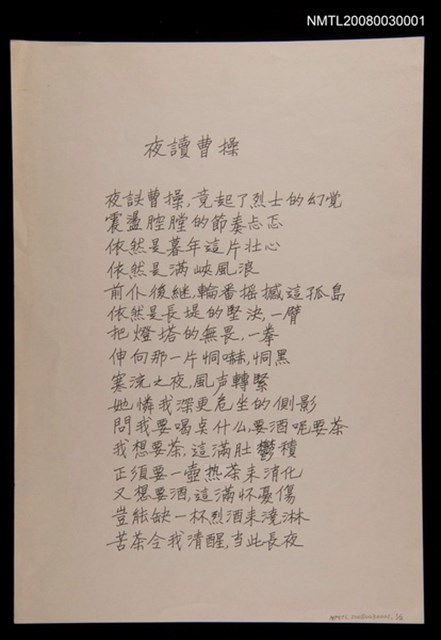 NMTL20080030001
夜讀曹操
夜读曹操,竟起了烈士的幻觉
震盪腔膛的節奏忐忑
依然是暮年這片壯心
依然是滿峽風浪
前仆後継,輪番摇撼這孤島
依然是長堤的堅决,一臂
把燈塔的無畏,一拳
伸向那一片恫嚇,恫黑
寒流之夜,風声轉緊
她憐我深更危坐的側影
問我要喝点什么,要酒呢要茶
我想要茶,這滿肚鬱積
正須要一壺热茶来消化
又想要酒,這滿怀憂傷
豈能缺一杯烈酒来澆淋
苦茶令我清醒,当此長夜